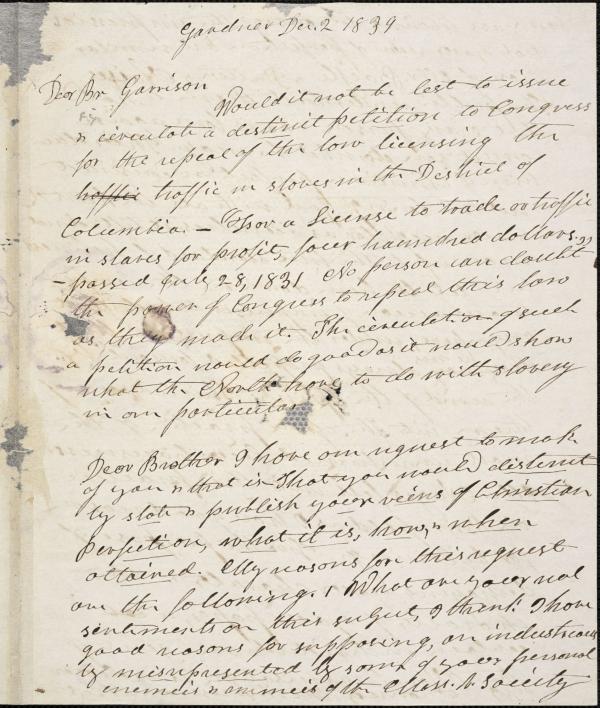 Gardner Dec. 2 1839
Dear Br Garrison
Would it not be best to issue
& circulate a destinct petition to Congress
for the repeal of the law licensing the
traffic in slaves in the Destrict of
Columbia. — "For a License to trade or traffic
in slaves for profit, four hundred dollars,"
— passed July 28, 1831 No person can doubt
the power of Congress to repeal this law
as they made it. The circulation of such
a petition would do good as it would show
what the North have to do with slavery
in one particular.
Dear Brother I have one request to mak
of you & that is That you would distinct
ly state & publish your veiws of Christian
Perfection, what it is, how, & when
attained. My reasons for this request
are the following. 1 What are your real
sentiments on this subject, I think I have
good reasons for supposing, are industrious
ly misrepresented by some of your personal
enemeis & enimeis of the Mass. A. Society